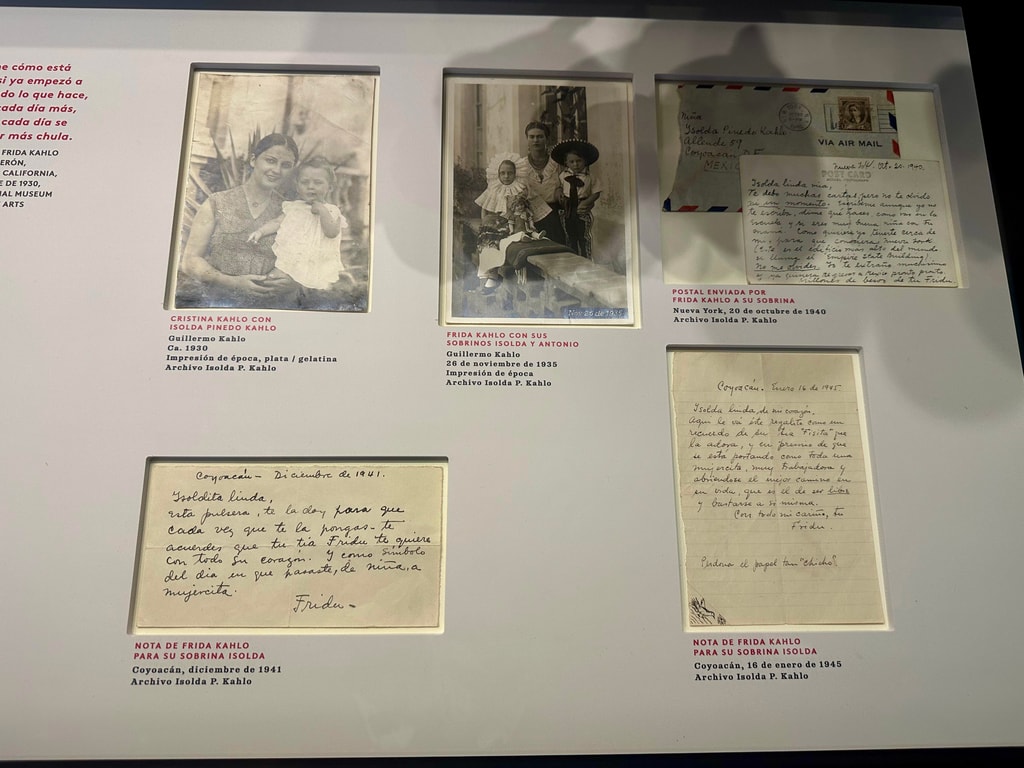 ne cómo está
si ya empezó a
do lo que hace,
cada día más,
cada día se
r más chula.
FRIDA KAHLO
ERÓN,
CALIFORNIA,
E DE 1930,
AL MUSEUM
ARTS
CRISTINA KAHLO CON
ISOLDA PINEDO KAHLO
Guillermo Kahlo
Ca. 1930
Impresión de época, plata / gelatina
Archivo Isolda P. Kahlo
Nov. 26 de 1935
FRIDA KAHLO CON SUS
SOBRINOS ISOLDA Y ANTONIO
Guillermo Kahlo
26 de noviembre de 1935
Impresión de época
Archivo Isolda P. Kahlo
Niña
Isolda Pinedo Kahlo
Allende 59
Coyoacán D.F.
MEXICO
VIA AIR MAIL
POST CARD
Nueva York, Oct. 20. 1940.
Isolda linda mia,
Te debo muchas cartas pero no te olvido
ni un momento. Escribeme aunque yo no
te escriba, dime que haces como vas en la
escuela y si eres muy buena niña con tu
mamá. Como quisiera yo tenerte cerca de
mi, para que conocieras Nueva York
(Este es el edificio mas alto del mundo
se llama Empire State Building)
No me olvides. Yo te extraño muchisimo
y ya quisiera regresar a Mexico pronto pronto
millones de besos de tu Fridu.
POSTAL ENVIADA POR
FRIDA KAHLO A SU SOBRINA
Nueva York, 20 de octubre de 1940
Archivo Isolda P. Kahlo
Coyoacán - Diciembre de 1941.
Isoldita linda,
esta pulsera, te la doy para que
cada vez que te la pongas - te
acuerdes que tu tia Fridu te quiere
con todo su corazón. y como simbolo
del dia en que pasaste, de niña, a
mujercita.
Fridu -
NOTA DE FRIDA KAHLO
PARA SU SOBRINA ISOLDA
Coyoacán, diciembre de 1941
Archivo Isolda P. Kahlo
Coyoacán. Enero 16 de 1945
Isolda linda, de mi corazón,
Aqui le va este regalito como un
recuerdo de su tia "Fisita" que
la adora, y en premio de que
se esta portando como toda una
mujercita, muy trabajadora y
abriendose el mejor camino en
su vida, que es el de ser libre
y bastarse a si misma.
Con todo mi cariño, tu
Fridu.
Perdona el papel tan "chicho".
NOTA DE FRIDA KAHLO
PARA SU SOBRINA ISOLDA
Coyoacán, 16 de enero de 1945
Archivo Isolda P. Kahlo